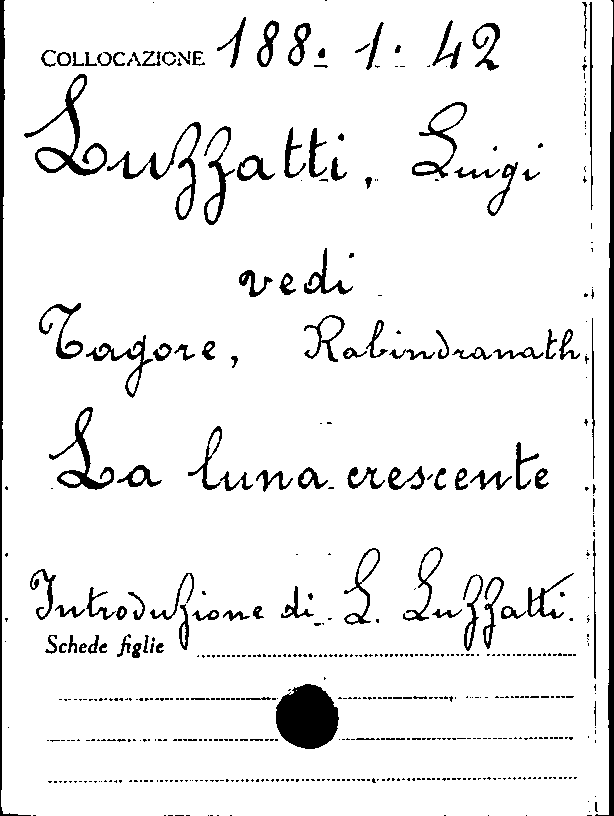 COLLOCAZIONE 188. 1. 42
Luzzatti, Luigi
vedi
Tagore, Rabindranath.
La luna crescente
Introduzione di L. Luzzatti.
Schede figlie